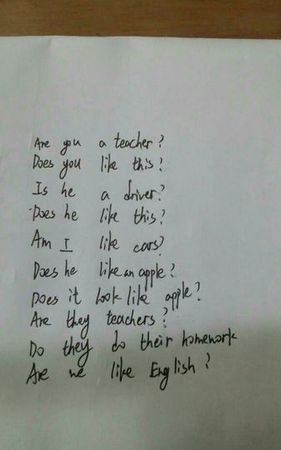 Are you a teacher?
Does you like this?
Is he a driver?
Does he like this?
Am I like cars?
Does he like an apple?
Does it look like apple?
Are they teachers?
Do they do their homework
Are we like English?